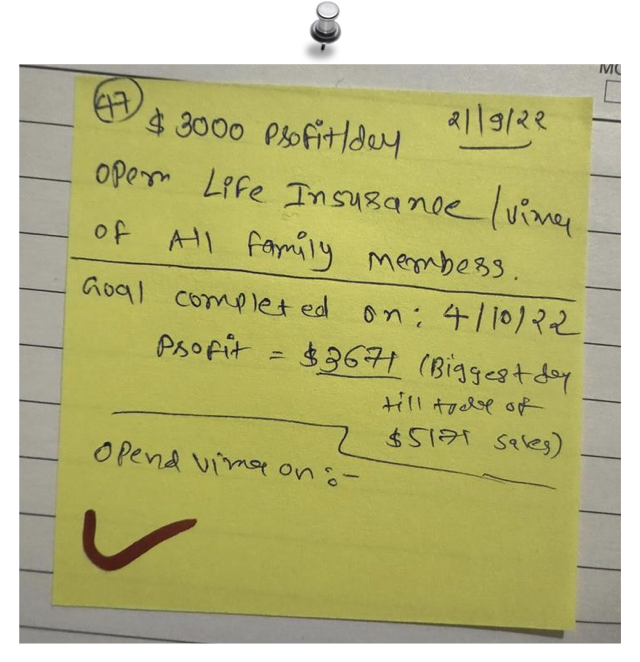 MO
47
$3000 Profit/day 21/9/22
Open Life Insurance/vima
of All family members.
Goal completed on: 4/10/22
Profit = $3671 (Biggest day
till today of
$5171 sales)
Opend vima on :-